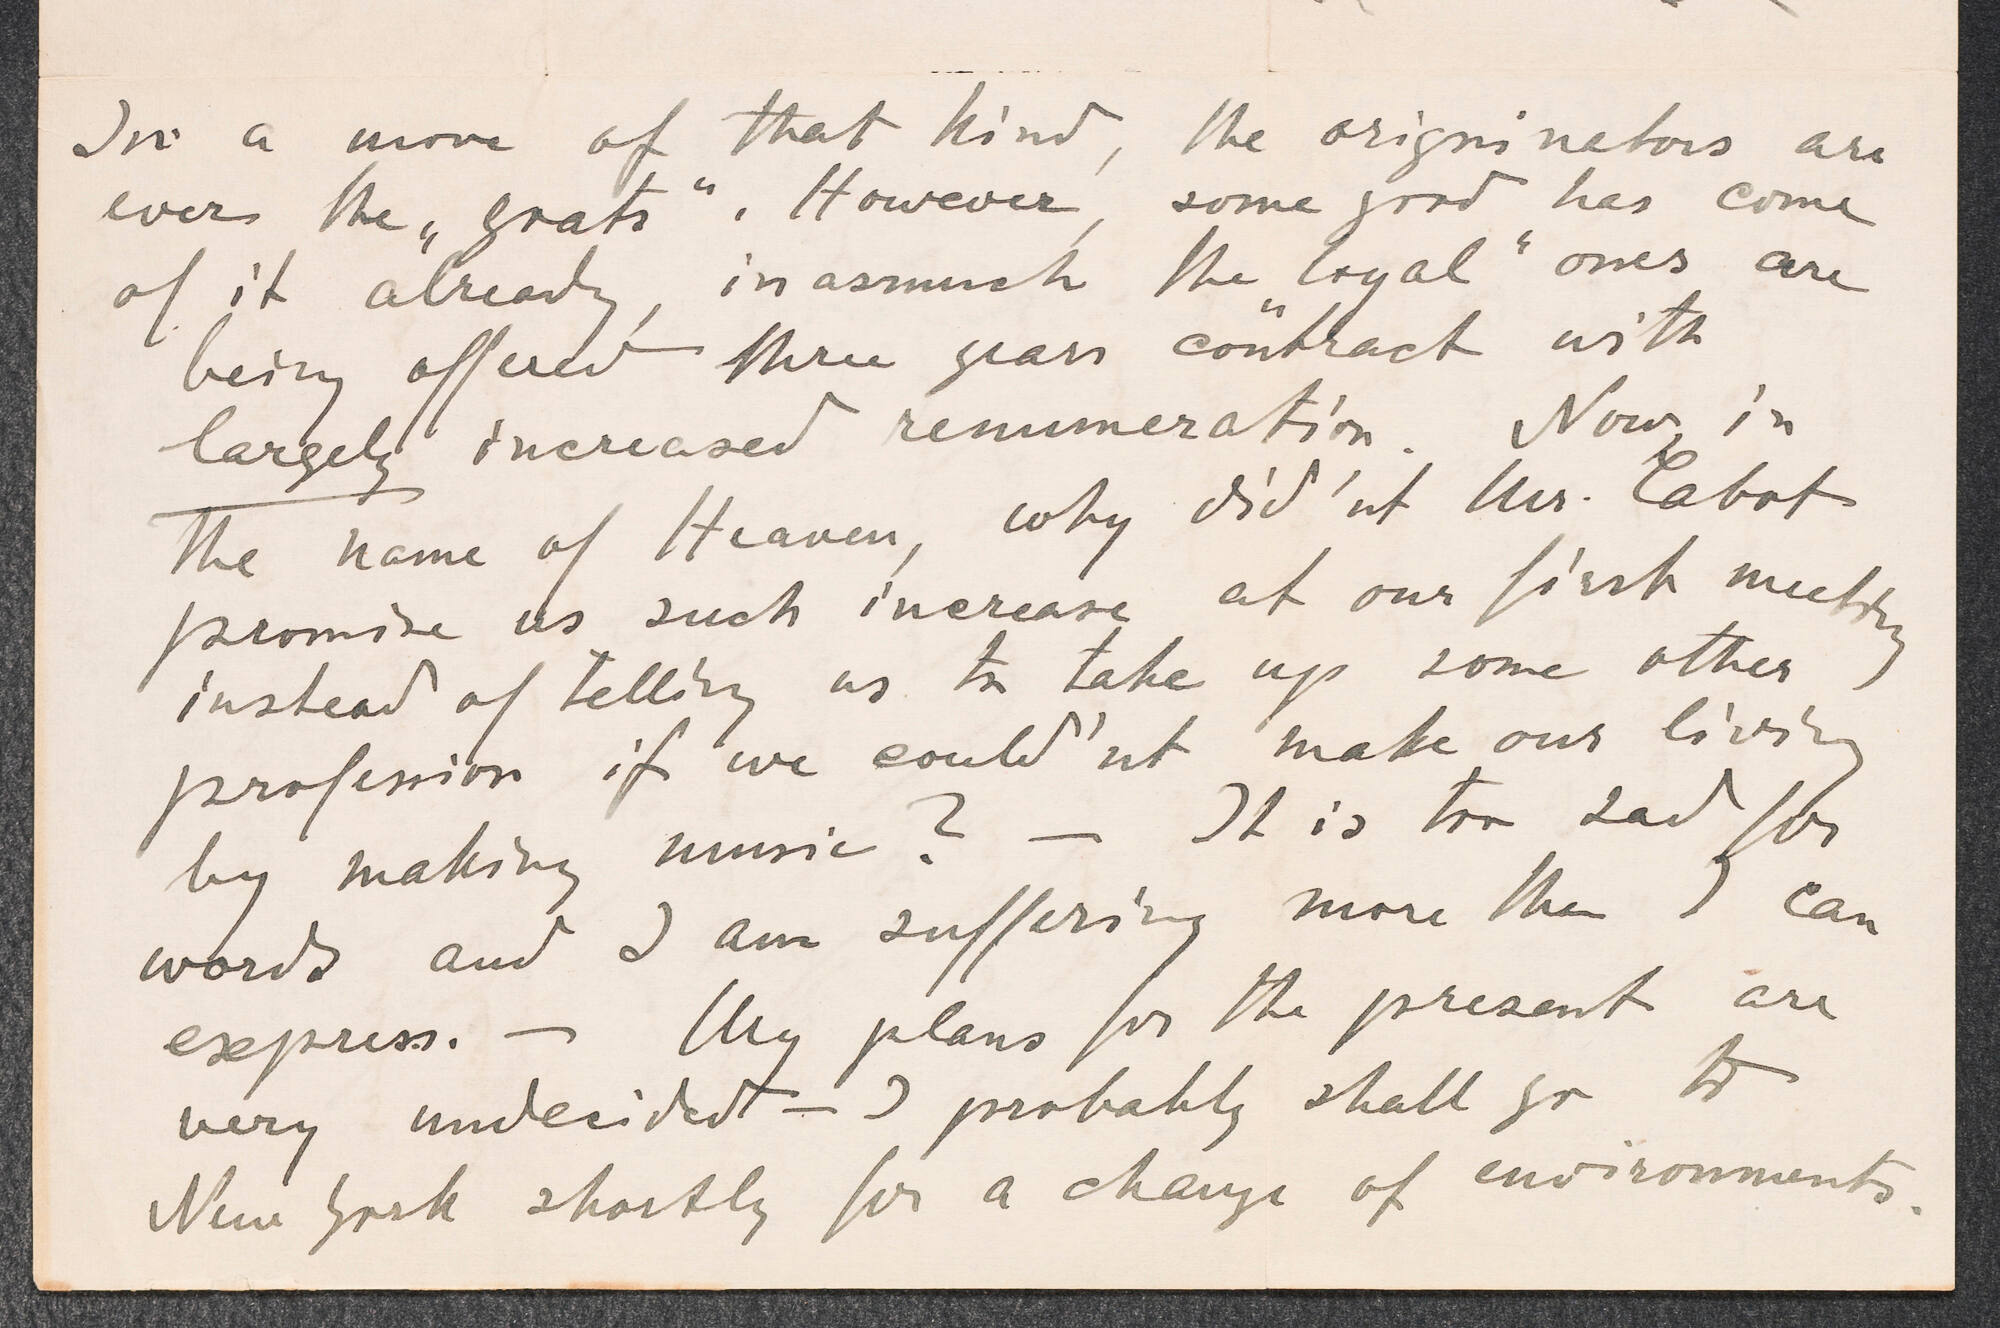 In a move of that kind, the origninators are
ever the „goats“. However, some good has come
of it already, inasmuch the „loyal“ ones are
being offered three years contract with
largely increased renumeration. Now, in
the name of Heaven, why did'nt Mr. Cabot
promise us such increase at our first meeting
instead of telling us to take up some other
profession if we could'nt make our living
by making music? — It is too sad for
words and I am suffering more than I can
express. — My plans for the present are
very undecided — I probably shall go to
New York shortly for a change of environments.